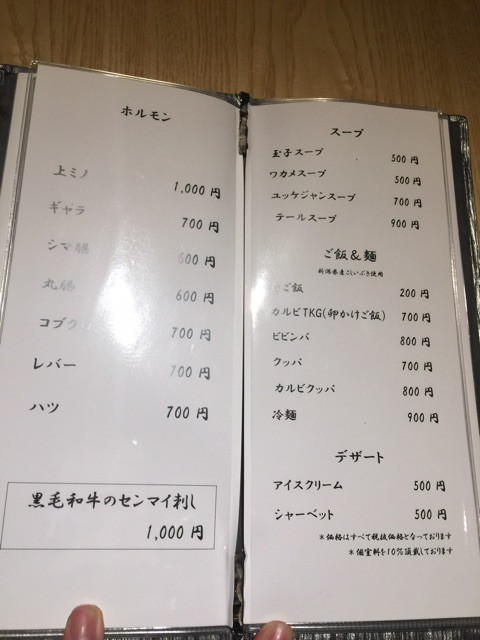 ホルモン
上ミノ 1,000 円
ギャラ 700 円
シマ腸 600 円
丸腸 600 円
コブクロ 700 円
レバー 700 円
ハツ 700 円
黒毛和牛のセンマイ刺し
1,000 円
スープ
玉子スープ 500 円
ワカメスープ 500 円
ユッケジャンスープ 700 円
テールスープ 900 円
ご飯&麺
新潟県産こしいぶき使用
ご飯 200 円
カルビTKG(卵かけご飯) 700 円
ビビンバ 800 円
クッパ 700 円
カルビクッパ 800 円
冷麺 900 円
デザート
アイスクリーム 500 円
シャーベット 500 円
*価格はすべて税抜価格となっております
*個室料を10%頂戴しております